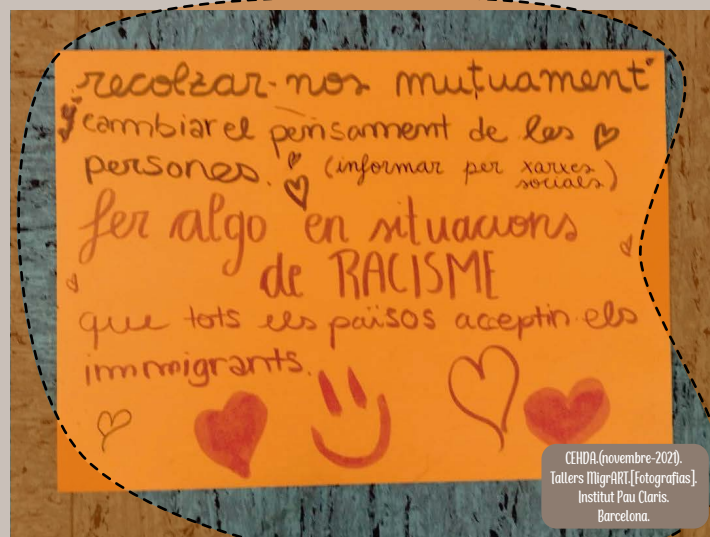 recolzar-nos mutuament
y cambiar el pensament de les
persones. (informar per xarxes
socials)
fer algo en situacions
de RACISME
que tots els països acceptin els
immigrants.
CEHDA.(novembre-2021).
Tallers MigrART.[Fotografias].
Institut Pau Claris.
Barcelona.